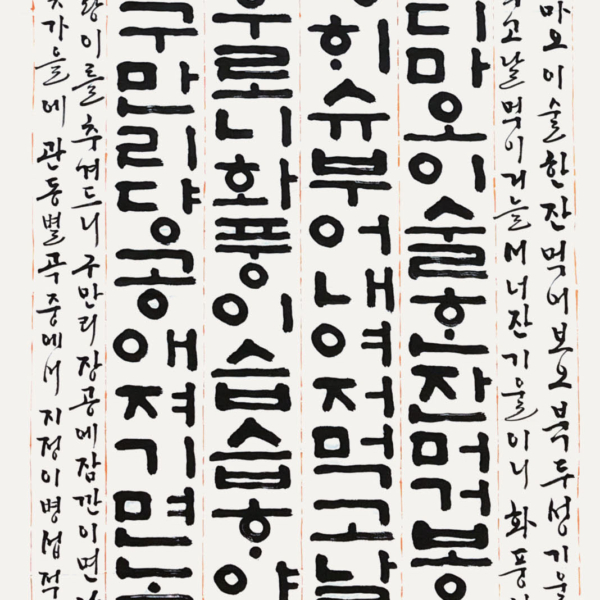 마오 이 술 한 잔 먹어 보오 북두성 기울
고 날 먹이거늘 서너 잔 기울이니 화풍
마오이술ᄒᆞᆫ잔머거보오
ᄒᆡ슈부어내여저먹고날
로니화풍이습습ᄒᆞ야
구만리댱공애져기면
이를 추켜드니 구만리 장공에 잠깐이면
가을에 관동별곡 중에서 지정 이병섭 적